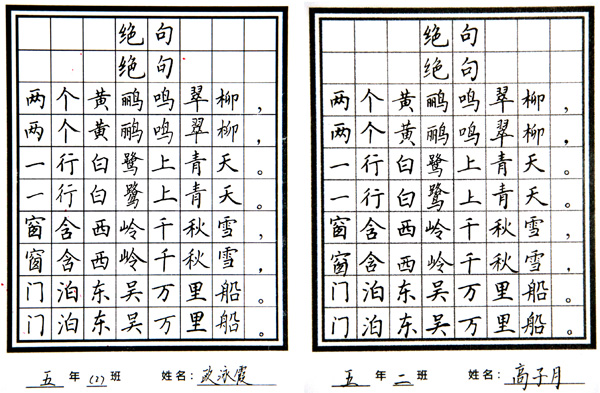 绝句
绝句
两个黄鹂鸣翠柳，
两个黄鹂鸣翠柳，
一行白鹭上青天。
一行白鹭上青天。
窗含西岭千秋雪，
窗含西岭千秋雪，
门泊东吴万里船。
门泊东吴万里船。
五年(2)班 姓名：泳霞
绝句
绝句
两个黄鹂鸣翠柳，
两个黄鹂鸣翠柳，
一行白鹭上青天。
一行白鹭上青天。
窗含西岭千秋雪，
窗含西岭千秋雪，
门泊东吴万里船。
门泊东吴万里船。
五年二班 姓名：高子月